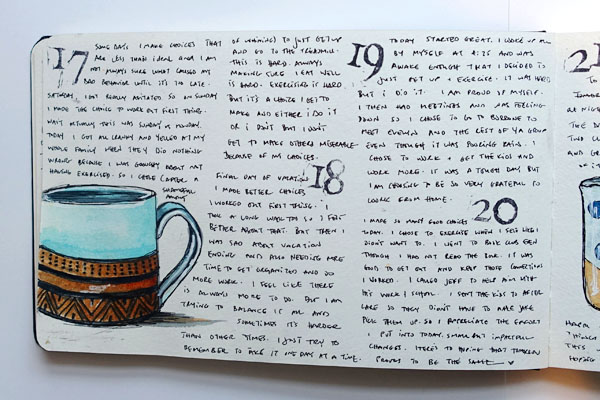 17
SOME DAYS I MAKE CHOICES THAT
ARE LESS THAN IDEAL AND I AM
NOT ALWAYS SURE WHAT CAUSED MY
BAD BEHAVIOR UNTIL IT'S TOO LATE.
SATURDAY, I GOT REALLY AGITATED. SO ON SUNDAY
I MADE THE CHOICE TO WORK OUT FIRST THING.
WAIT ACTUALLY THIS WAS SUNDAY VS MONDAY.
TODAY I GOT ALL CRANKY AND YELLED AT MY
WHOLE FAMILY WHEN THEY DID NOTHING
WRONG BECAUSE I WAS GROUCHY ABOUT NOT
HAVING EXERCISED. SO I CHOSE (AFTER A
SHAMEFUL
AMOUNT
OF WHINING) TO JUST GET UP
AND GO TO THE TREADMILL.
THIS IS HARD. ALWAYS
MAKING SURE I EAT WELL
IS HARD. EXERCISING IS HARD.
BUT IT'S A CHOICE I GET TO
MAKE AND EITHER I DO IT
OR I DON'T BUT I DON'T
GET TO MAKE OTHERS MISERABLE
BECAUSE OF MY CHOICES.
18
FINAL DAY OF VACATION
I MADE BETTER CHOICES
I WORKED OUT FIRST THING. I
TOOK A LONG WALK TOO SO I FELT
BETTER ABOUT THAT. BUT THEN I
WAS SAD ABOUT VACATION
ENDING AND ALSO NEEDING MORE
TIME TO GET ORGANIZED AND DO
MORE WORK. I FEEL LIKE THERE
IS ALWAYS MORE TO DO. BUT I AM
TRYING TO BALANCE IT ALL AND
SOMETIMES IT'S HARDER
THAN OTHER TIMES. I JUST TRY TO
REMEMBER TO TAKE IT ONE DAY AT A TIME.
19
TODAY STARTED GREAT. I WOKE UP
BY MYSELF AT 4:25 AND WAS
AWAKE ENOUGH THAT I DECIDED TO
JUST GET UP & EXERCISE. IT WAS HARD
BUT I DID IT. I AM PROUD OF MYSELF.
I THEN HAD MEETINGS AND WAS FEELING
DOWN SO I CHOSE TO GO TO BORDONE TO
MEET EVELYN AND THE REST OF YA GROUP
EVEN THOUGH IT WAS POURING RAIN. I
CHOSE TO WORK & GET THE KIDS AND
WORK MORE. IT WAS A TOUGH DAY BUT
I AM CHOOSING TO BE SO VERY GRATEFUL TO
WORK FROM HOME.
20
I MADE SO MANY GOOD CHOICES
TODAY. I CHOSE TO EXERCISE WHEN I FELT LIKE I
DIDN'T WANT TO. I WENT TO BOOK CLUB EVEN
THOUGH I HAD NOT READ THE BOOK. IT WAS
GOOD TO GET OUT AND KEEP THOSE CONNECTIONS
I WORKED. I CALLED JEFF TO HELP HIM WITH
WORK / SCHOOL. I SENT THE KIDS TO AFTER
CARE SO THEY DIDN'T HAVE TO MAKE JAKE
PICK THEM UP. SO I APPRECIATE THE EFFORT
I PUT INTO TODAY. SMALL BUT IMPACTFUL
CHANGES. HERE'S TO HOPING THAT TOMORROW
PROVES TO BE THE SAME
21
TO
TOMORR
AT NIGH
THE D
AND G
OF IT
HARD
THINGS
THIS
HOPING